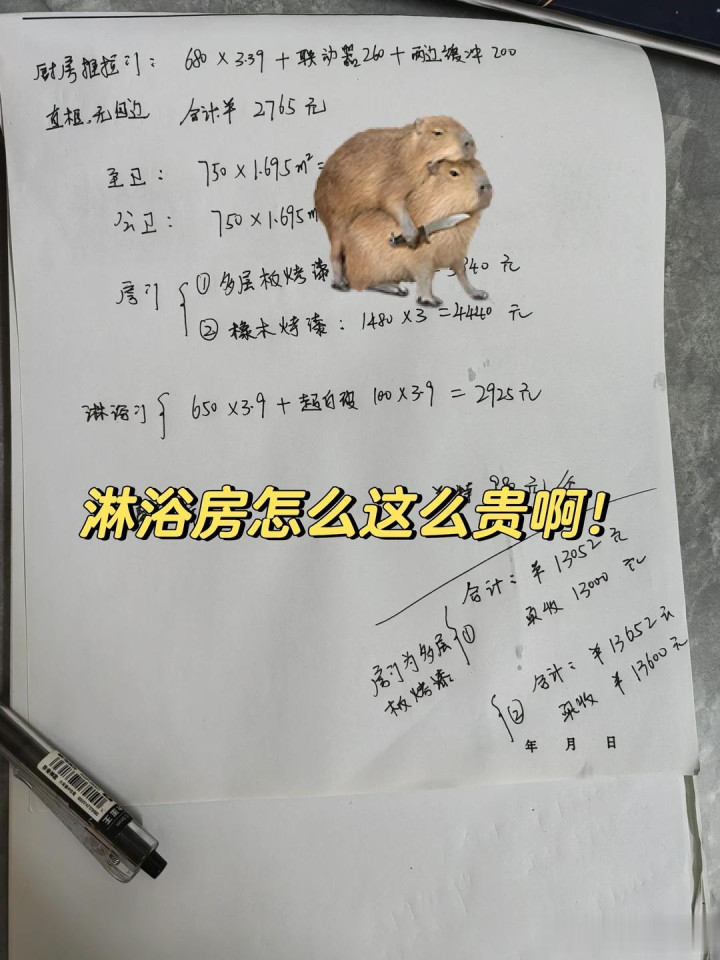 厨房推拉门：680×3.39+联动器260+两边缓冲200
直框、无回边 合计￥2765元
主卫：750×1.695m²=
公卫：750×1.695m
房门 ①多层板烤漆 40元
②橡木烤漆：1480×3=4440元
淋浴门 650×3.9+超白玻100×3.9=2925元
淋浴房怎么这么贵啊！
合计：￥13052元
实收 13000元
房门为多层板烤漆 ①
② 合计：￥13652元
实收 ￥13600元
年 月 日